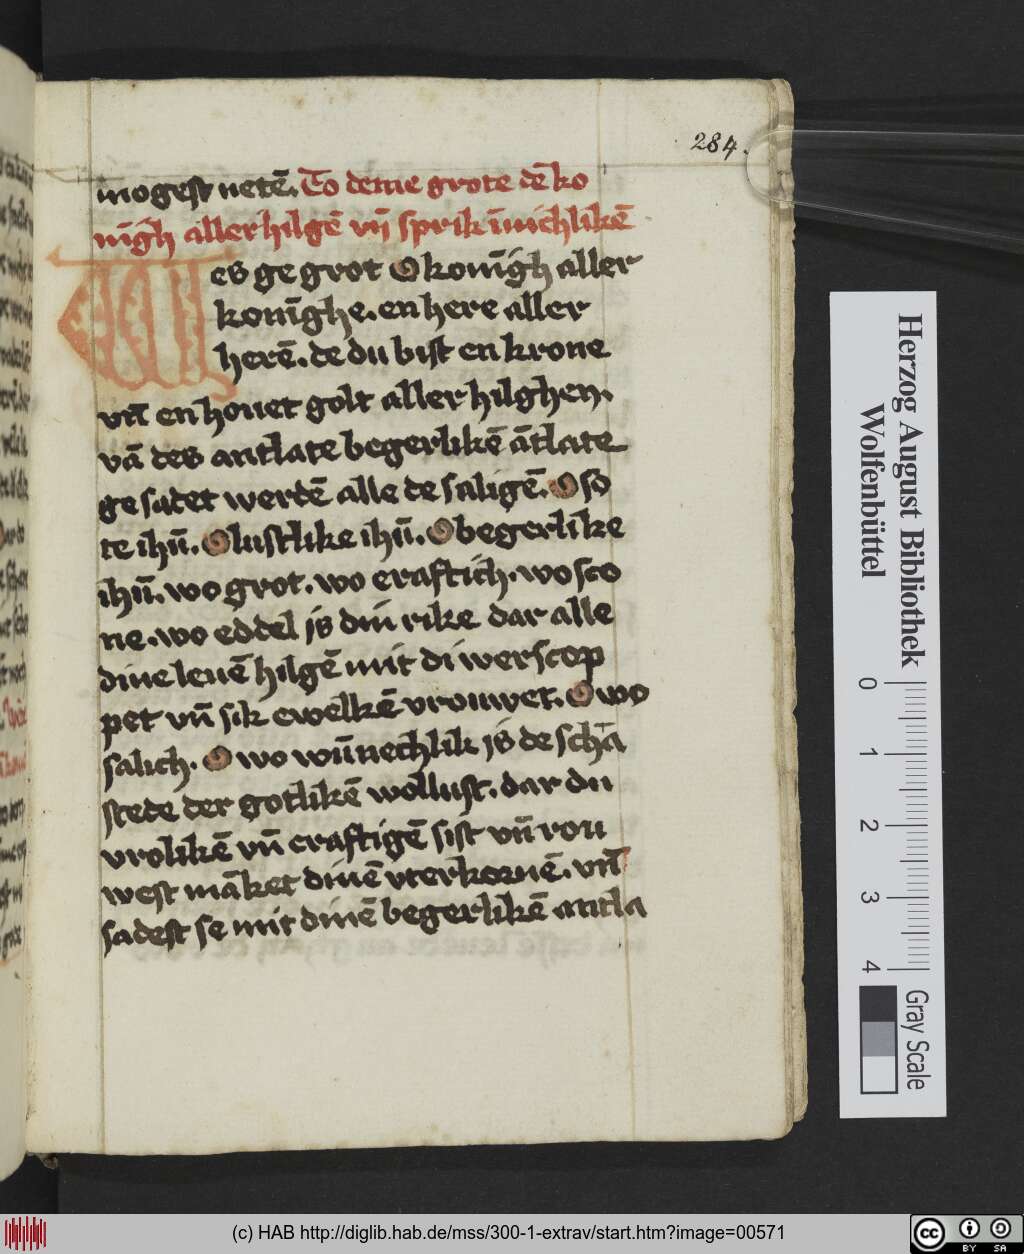 284.
mogest netē. To deme grote dē ko
nīgh aller hilgē vn̄ sprik īnichlikē
Wes ge grot O konīgh aller
konīghe. en here aller
herē. de du bist en krone
vn̄ en houet golt aller hilghen.
vā des antlate begerlikē ātlate
ge sadet werdē alle de saligē. O so
te ihū. O lustlike ihū. O begerlike
ihū. wo grot. wo craftich. wo sco
ne. wo eddel is din rike dar alle
dine leuē hilgē mit di werscop
pet vn̄ sik ewelkē vrouwet. O wo
salich. O wo wūnechlik is de schā
stede der gotlikē wollust. dar du
vrolikē vn̄ craftigē sist vn̄ rou
west māket dinē vterkornē. vn̄
sadest se mit dinē begerlikē antla
Herzog August Bibliothek
Wolfenbüttel
0 1 2 3 4
Gray Scale
(c) HAB http://diglib.hab.de/mss/300-1-extrav/start.htm?image=00571
cc BY SA